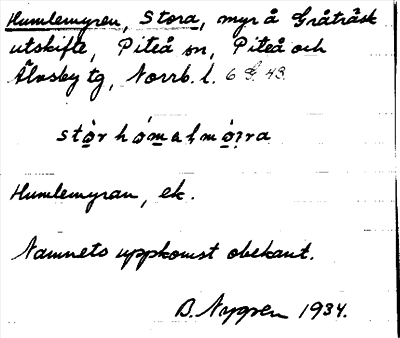 Humlemyren, Stora, myr å Gråträsk
utskifte, Piteå sn, Piteå och
Älvsby tg, Norrb. l. 6 G. 43.
Humlemyran, ek.
Namnets uppkomst obekant.
B. Nygren 1934.